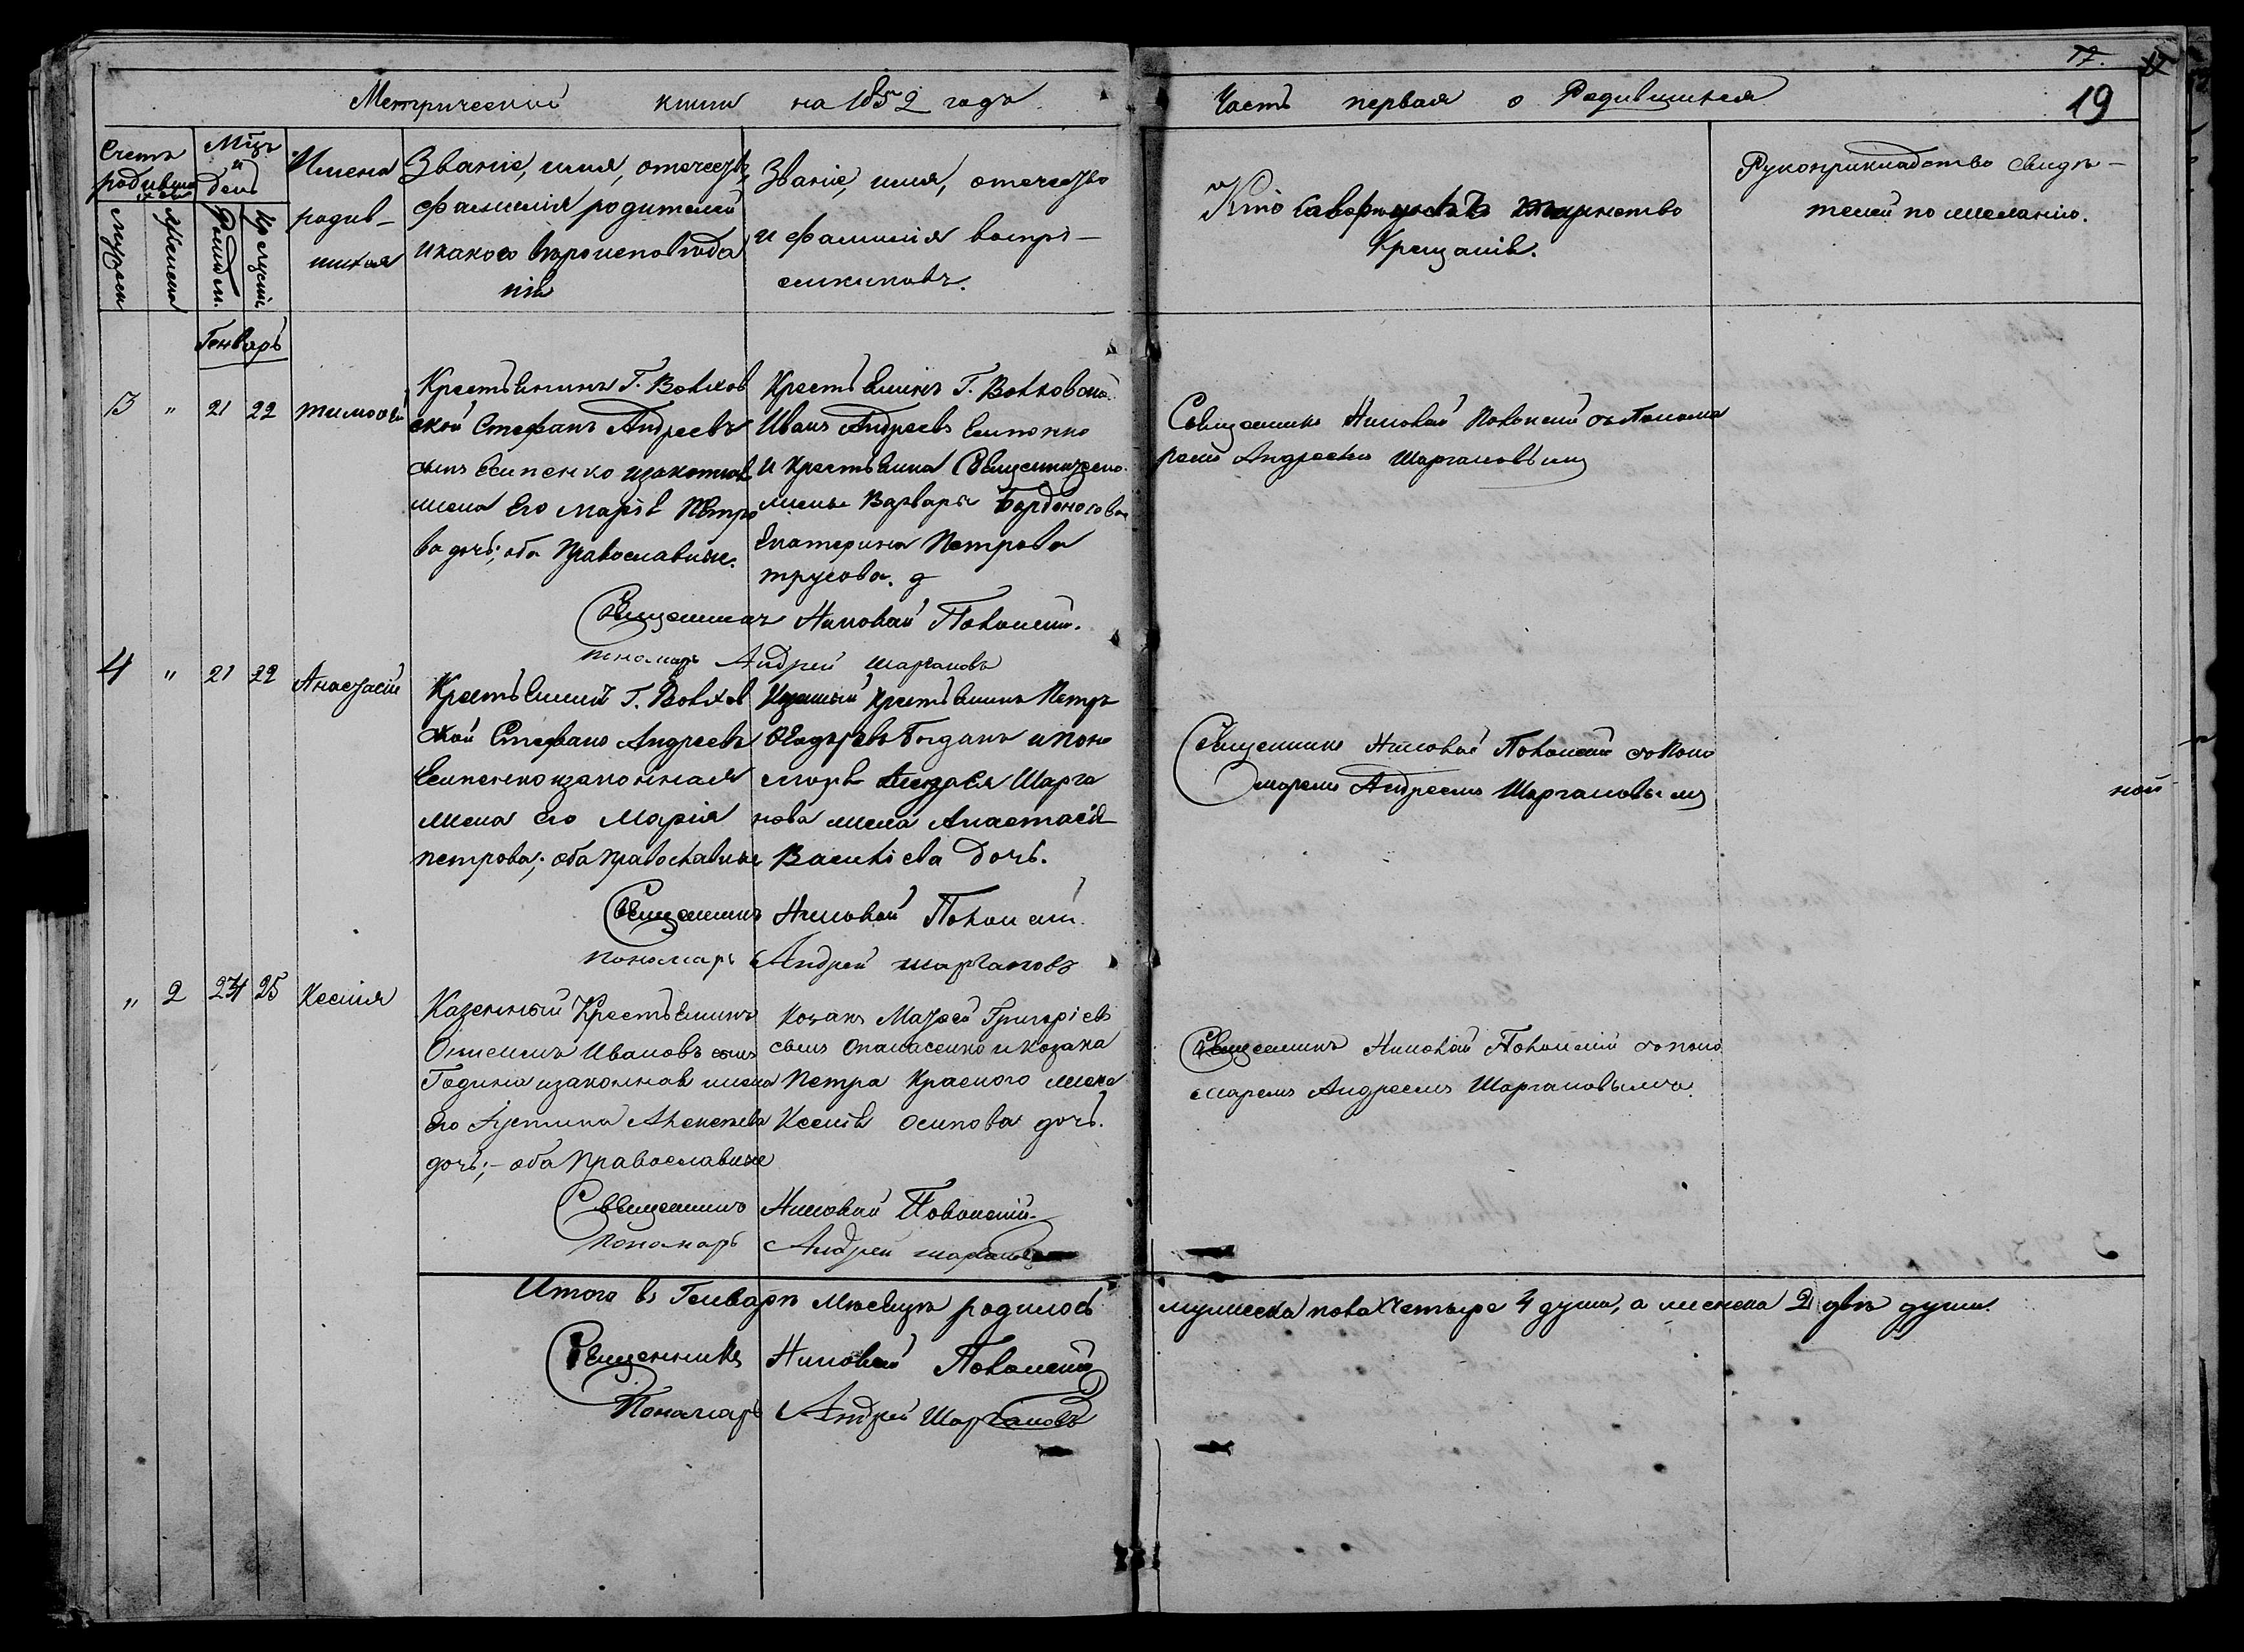 17.
Метрической книги на 1852 года.
Часть первая о Родившихся
19
Счетъ родившихся
Мцъ и день
Имена родив-
шихся
Званіе, имя, отечество,
фамилія родителей
и какого вѣроисповѣда
нія
Званіе, имя, отечество
и фамилія воспрі-
емниковъ.
Кто совершалъ таинство
Крещанія.
Рукоприкладство свидѣ-
телей по желанію.
Мужеска
Женска
Рожден.
Крещен.
Генварь
3 " 21 22 Тимофей
Крестьянинъ Г. Волхов
ской Стефанъ Андреевъ
сынъ Есипенко изаконная
жена Его Марія Петро
ва дочь; оба Православные.
Крестьянинъ Г. Волховской
Иванъ Андреевъ Есипенко
и крестьянка Священнической
жены Варвары
Екатерина Петрова
трусова. д
Священникъ Николай Полонскій съ Понома
ремъ Андреемъ Шаргановымъ
Священникъ Николай Полонскій.
пономарь Андрей Шаргановъ
4 " 21 22 Анастасій
Крестьянинъ Г. Волхов
ской Стефанъ Андреевъ
Есипенко изаконная
жена его Марія
петрова; оба православные
Казенный Крестьянинъ Петръ
Богданъ и поно
моря Андрея Шарга
нова жена Анастасія
Василіева дочь.
Священникъ Николай Полонскій со поно
маремъ Андреемъ Шаргановымъ
ной
Священникъ Николай Полонскій.
пономарь Андрей Шаргановъ
" 2 24 25 Ксенія
Казенный Крестьянинъ
Онисимъ Ивановъ сынъ
Година изаконная жена
его Устина Алексѣева
дочь;- оба Православные
Козакъ Матвей Григоріевъ
сынъ Опанасенко и козака
Петра Красного жена
Ксенія Осипова дочь.
Священникъ Николай Полонскій со поно
маремъ Андреемъ Шаргановымъ.
Священникъ Николай Полонскій.
пономарь Андрей Шаргановъ
Итого въ Генварѣ Мѣсяцѣ родилось мужеска пола четыре 4 души, а женска 2 двѣ души.
Священникъ Николай Полонскій
Пономарь Андрей Шаргановъ